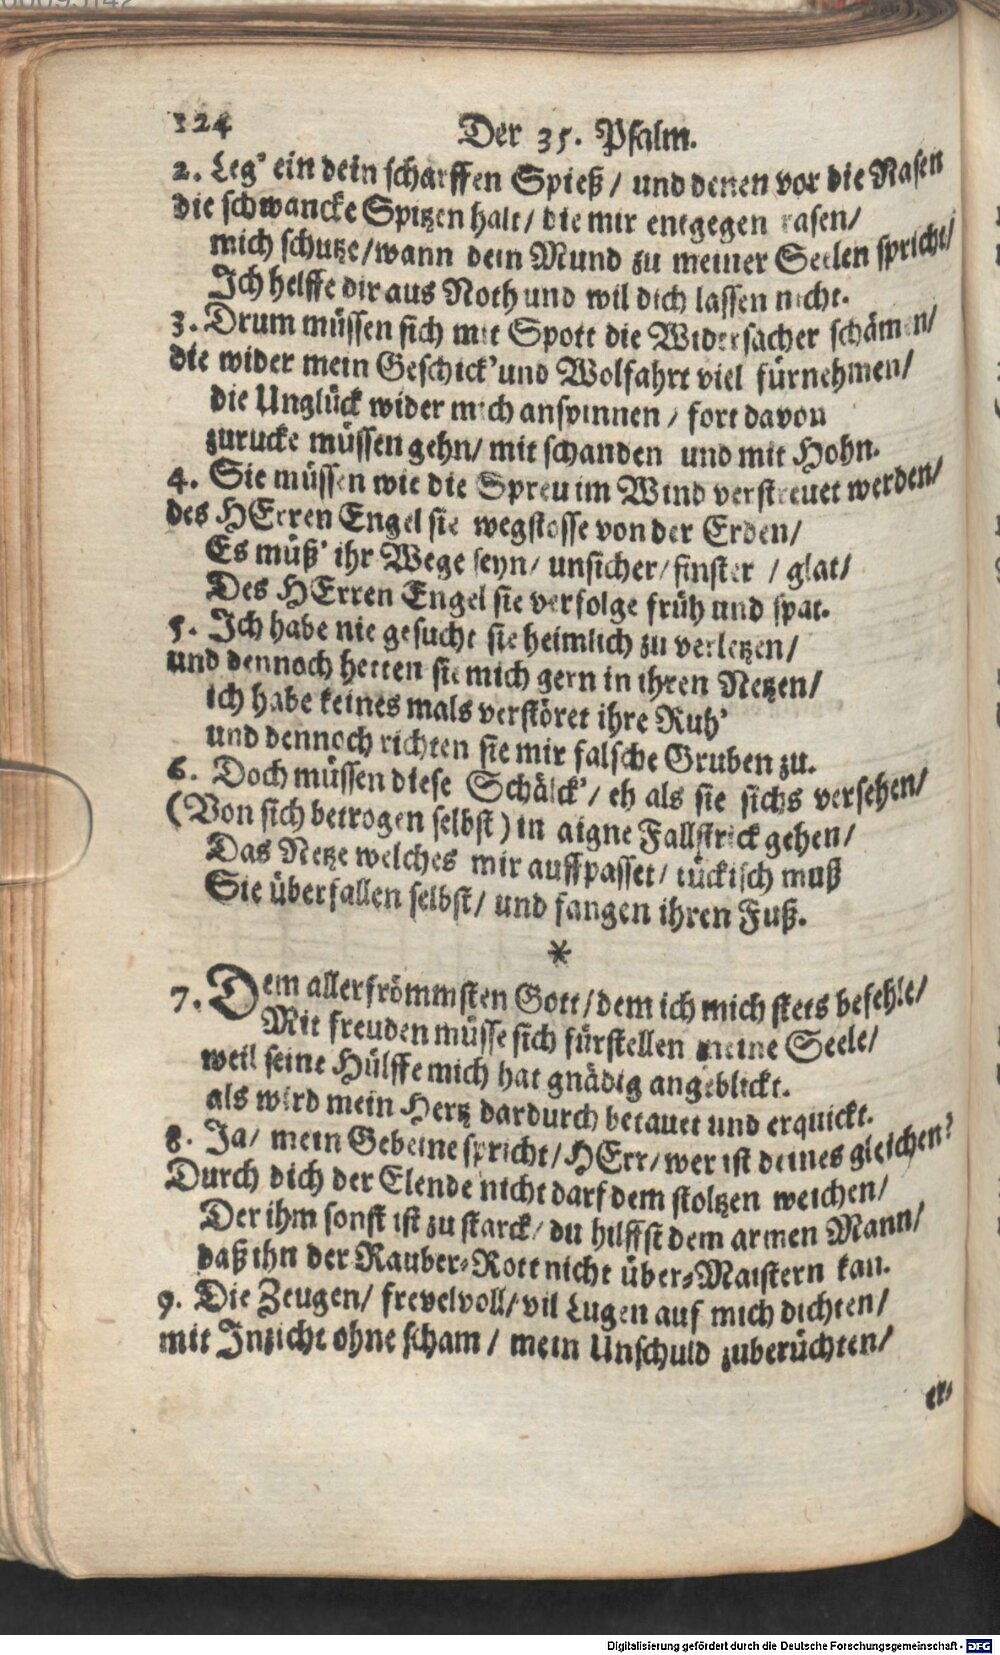 124
Der 35. Psalm.
2. Leg' ein dein scharffen Spieß / und denen vor die Nasen
die schwancke Spitzen halt / die mir entgegen rasen /
mich schutze / wann dein Mund zu meiner Seelen spricht /
Ich helffe dir aus Noth und wil dich lassen nicht.
3. Drum müssen sich mit Spott die Widersacher schämen /
die wider mein Geschick' und Wolfahrt viel fürnehmen /
die Unglück wider mich anspinnen / fort davon
zurucke müssen gehn / mit schanden und mit Hohn.
4. Sie müssen wie die Spreu im Wind verstreuet werden /
des HErren Engel sie wegstosse von der Erden /
Es müß' ihr Wege seyn / unsicher / finster / glat /
Des HErren Engel sie verfolge früh und spat.
5. Ich habe nie gesucht sie heimlich zu verletzen /
und dennoch hetten sie mich gern in ihren Netzen /
ich habe keines mals verstöret ihre Ruh'
und dennoch richten sie mir falsche Gruben zu.
6. Doch müssen diese Schälck' / eh als sie sichs versehen /
(Von sich betrogen selbst) in aigne Fallstrick gehen /
Das Netze welches mir auffpasset / tückisch muß
Sie überfallen selbst / und fangen ihren Fuß.
*
7. Dem allerfrömmsten Gott / dem ich mich stets befehle /
Mit freuden müsse sich fürstellen meine Seele /
weil seine Hülffe mich hat gnädig angeblickt.
als wird mein Hertz dardurch betauet und erquickt.
8. Ja / mein Gebeine spricht / HErr / wer ist deines gleichen?
Durch dich der Elende nicht darf dem stoltzen weichen /
Der ihm sonst ist zu starck / du hilffst dem armen Mann /
daß ihn der Rauber-Rott nicht über-Maistern kan.
9. Die Zeugen / frevelvoll / vil Lugen auf mich dichten /
mit Inzicht ohne scham / mein Unschuld zuberüchten /
er-
Digitalisierung gefördert durch die Deutsche Forschungsgemeinschaft - DFG